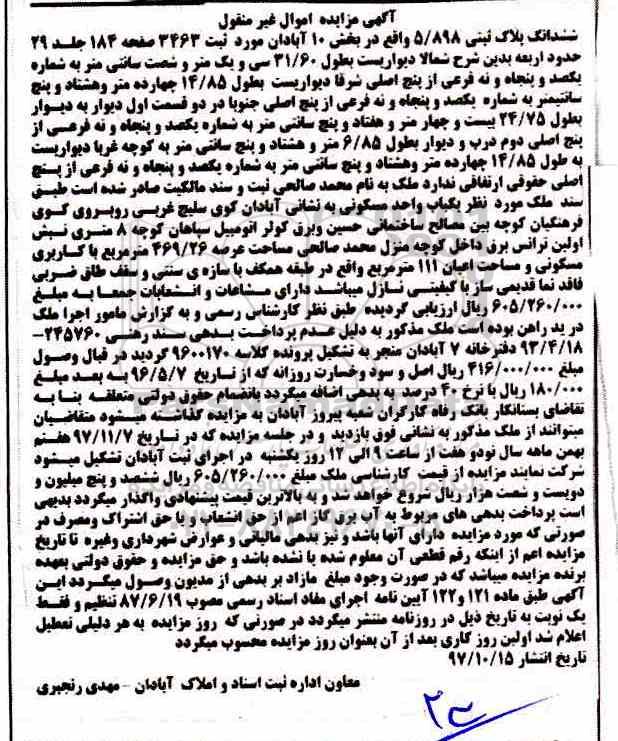 آگهی مزایده اموال غیر منقول
ششدانگ پلاک ثبتی ۵/۸۹۸ واقع در بخش ۱۰ آبادان مورد ثبت ۳۴۶۳ صفحه ۱۸۴ جلد ۲۹
حدود اربعه بدین شرح شمالا دیواریست بطول ۳۱/۶۰ سی و یک متر و شصت سانتی متر به شماره
یکصد و پنجاه و نه فرعی از پنج اصلی شرقا دیواریست بطول ۱۴/۸۵ چهارده متر وهشتاد و پنج
سانتیمتر به شماره یکصد و پنجاه و نه فرعی از پنج اصلی جنوبا در دو قسمت اول دیوار به دیوار
بطول ۲۴/۷۵ بیست و چهار متر و هفتاد و پنج سانتی متر به شماره یکصد و پنجاه و نه فرعی از
پنج اصلی دوم درب و دیوار بطول ۶/۸۵ متر و هشتاد و پنج سانتی متر به کوچه غربا دیواریست
به طول ۱۴/۸۵ چهارده متر وهشتاد و پنج سانتی متر به شماره یکصد و پنجاه و نه فرعی از پنج
اصلی حقوقی ارتفاقی ندارد ملک به نام محمد صالحی ثبت و سند مالکیت صادر شده است طبق
سند ملک مورد نظر یکباب واحد مسکونی به نشانی آبادان کوی سلیچ غربی روبروی کوی
فرهنگیان کوچه بین مصالح ساختمانی حسین وبرق کولر اتومبیل سپاهان کوچه ۸ متری نبش
اولین ترانس برق داخل کوچه منزل محمد صالحی مساحت عرصه ۴۶۹/۲۶ مترمربع با کاربری
مسکونی و مساحت اعیان ۱۱۱ مترمربع واقع در طبقه همکف با سازه ی سنتی و سقف طاق ضربی
فاقد نما قدیمی ساز با کیفیتی نازل میباشد دارای مشاعات و انشعابات جمعا به مبلغ
۶۰۵/۲۶۰/۰۰۰ ریال ارزیابی گردیده طبق نظر کارشناس رسمی و به گزارش مامور اجرا ملک
در ید راهن بوده است ملک مذکور به دلیل عدم پرداخت بدهی سند رهنی ۲۴۵۷۶۰-
۹۳/۴/۱۸ دفترخانه ۷ آبادان منجر به تشکیل پرونده کلاسه ۹۶۰۰۱۷۰ گردید در قبال وصول
مبلغ ۴۱۶/۰۰۰/۰۰۰ ریال اصل و سود وخسارت روزانه که از تاریخ ۹۶/۵/۷ به بعد مبلغ
۱۸۰/۰۰۰ ریال با نرخ ۴۰ درصد به بدهی اضافه میگردد بانضمام حقوق دولتی متعلقه بنا به
تقاضای بستانکار بانک رفاه کارگران شعبه پیروز آبادان به مزایده گذاشته میشود متقاضیان
میتوانند از ملک مذکور به نشانی فوق بازدید و در جلسه مزایده که در تاریخ ۹۷/۱۱/۷ هفتم
بهمن ماهه سال نودو هفت از ساعت ۹ الی ۱۲ روز یکشنبه در اجرای ثبت آبادان تشکیل میشود
شرکت نمایند مزایده از قیمت کارشناسی ملک مبلغ ۶۰۵/۲۶۰/۰۰۰ ریال ششصد و پنج میلیون و
دویست و شصت هزار ریال شروع خواهد شد و به بالاترین قیمت پیشنهادی واگذار میگردد بدیهی
است پرداخت بدهی های مربوط به آب برق گاز اعم از حق انشعاب و یا حق اشتراک ومصرف در
صورتی که مورد مزایده دارای آنها باشد و نیز بدهی مالیاتی و عوارض شهرداری وغیره تا تاریخ
مزایده اعم از اینکه رقم قطعی آن معلوم شده یا نشده باشد و حق مزایده و حقوق دولتی بعهده
برنده مزایده میباشد که در صورت وجود مبلغ مازاد بر بدهی از مدیون وصول میگردد این
آگهی طبق ماده ۱۲۱ و۱۲۲ آیین نامه اجرای مفاد اسناد رسمی مصوب ۸۷/۶/۱۹ تنظیم و فقط
یک نوبت به تاریخ ذیل در روزنامه منتشر میگردد در صورتی که روز مزایده به هر دلیلی تعطیل
اعلام شد اولین روز کاری بعد از آن بعنوان روز مزایده محسوب میگردد
تاریخ انتشار ۹۷/۱۰/۱۵
معاون اداره ثبت اسناد و املاک آبادان - مهدی رنجبری